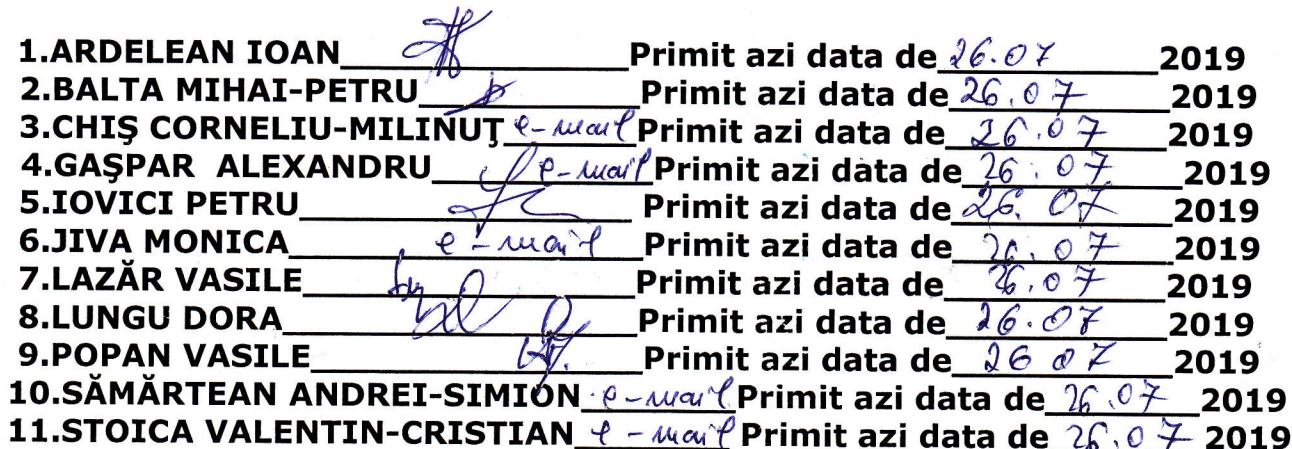 1.ARDELEAN IOAN Primit azi data de 26.07 2019
2.BALTA MIHAI-PETRU Primit azi data de 26.07 2019
3.CHIŞ CORNELIU-MILINUŢ e-mail Primit azi data de 26.07 2019
4.GAŞPAR ALEXANDRU e-mail Primit azi data de 26.07 2019
5.IOVICI PETRU Primit azi data de 26.07 2019
6.JIVA MONICA e-mail Primit azi data de 26.07 2019
7.LAZĂR VASILE Primit azi data de 26.07 2019
8.LUNGU DORA Primit azi data de 26.07 2019
9.POPAN VASILE Primit azi data de 26 07 2019
10.SĂMĂRTEAN ANDREI-SIMION e-mail Primit azi data de 26.07 2019
11.STOICA VALENTIN-CRISTIAN e-mail Primit azi data de 26.07 2019